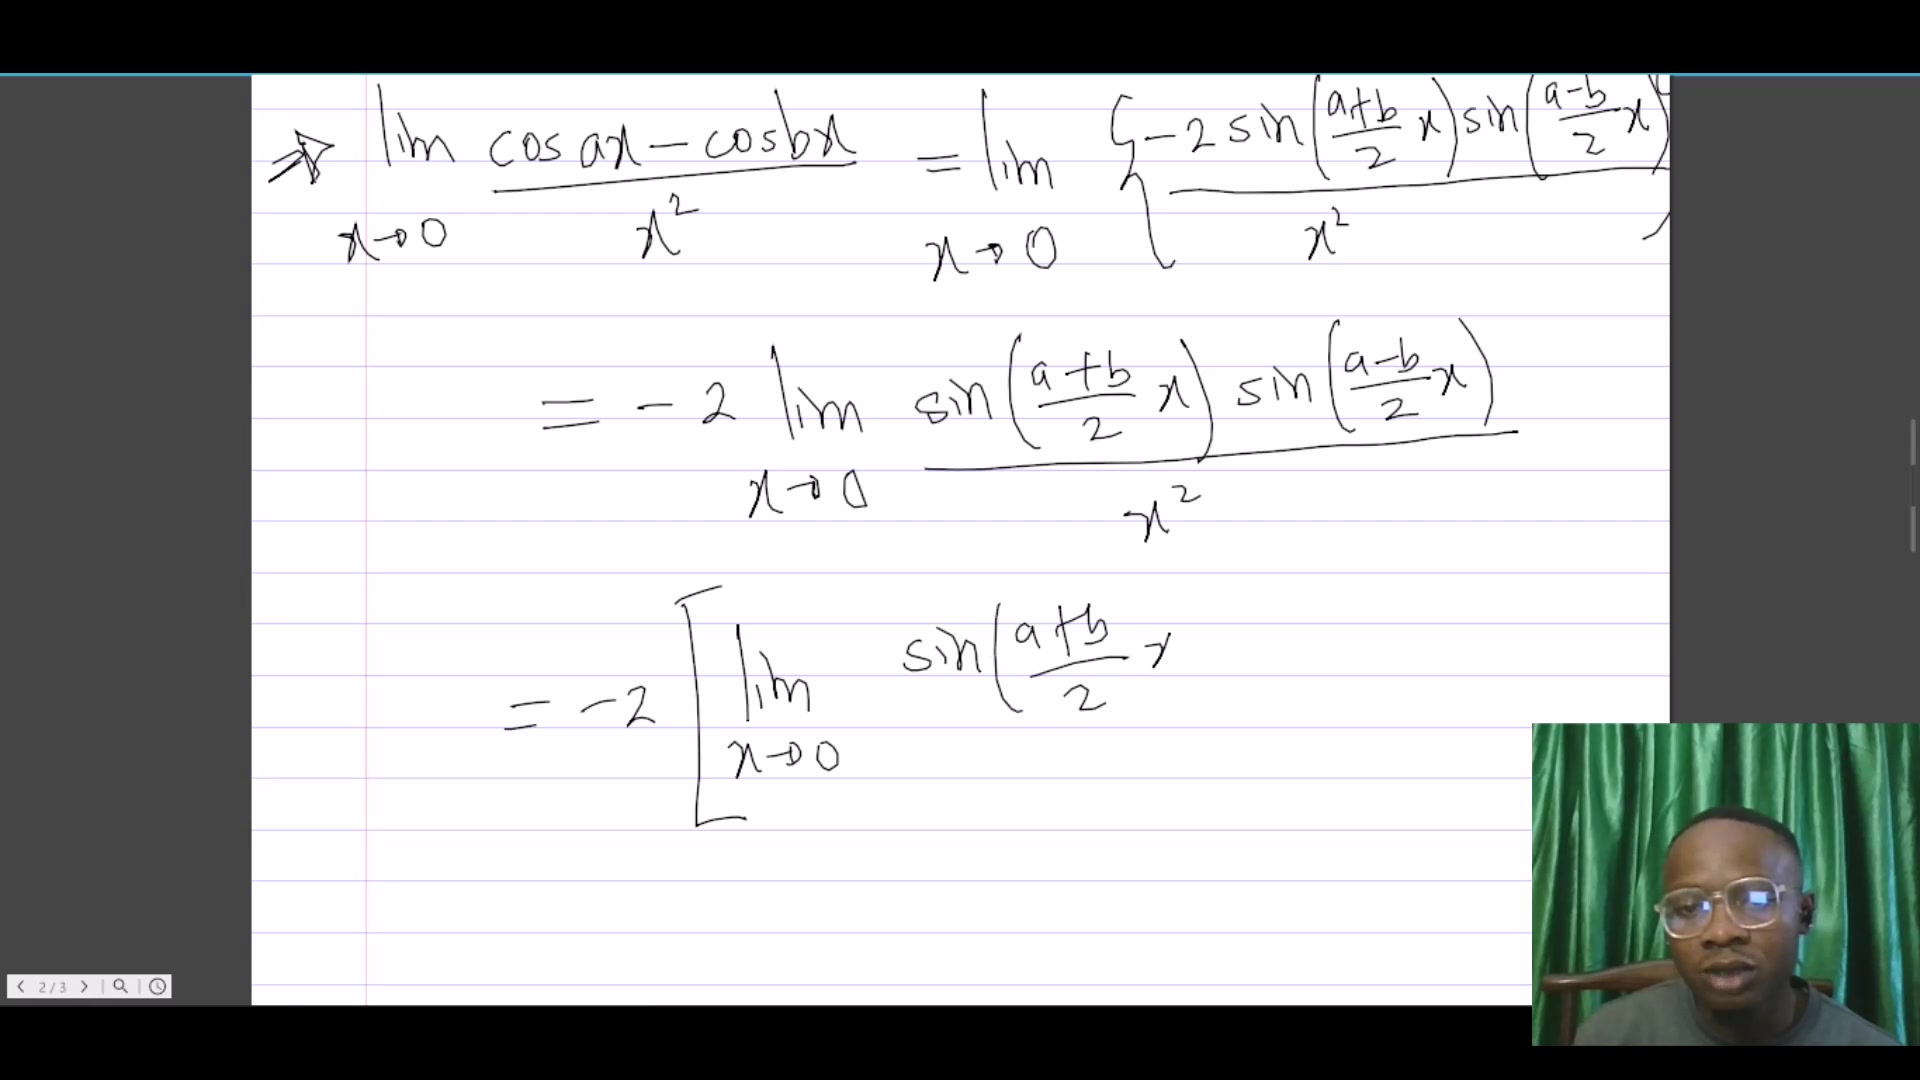 ⇒ lim x→0 (cos ax − cos bx)/x² = lim x→0 {−2 sin((a+b)/2 x) sin((a−b)/2 x)/x²
= −2 lim x→0 sin((a+b)/2 x) sin((a−b)/2 x)/x²
= −2 [lim x→0 sin((a+b)/2 x
2/3